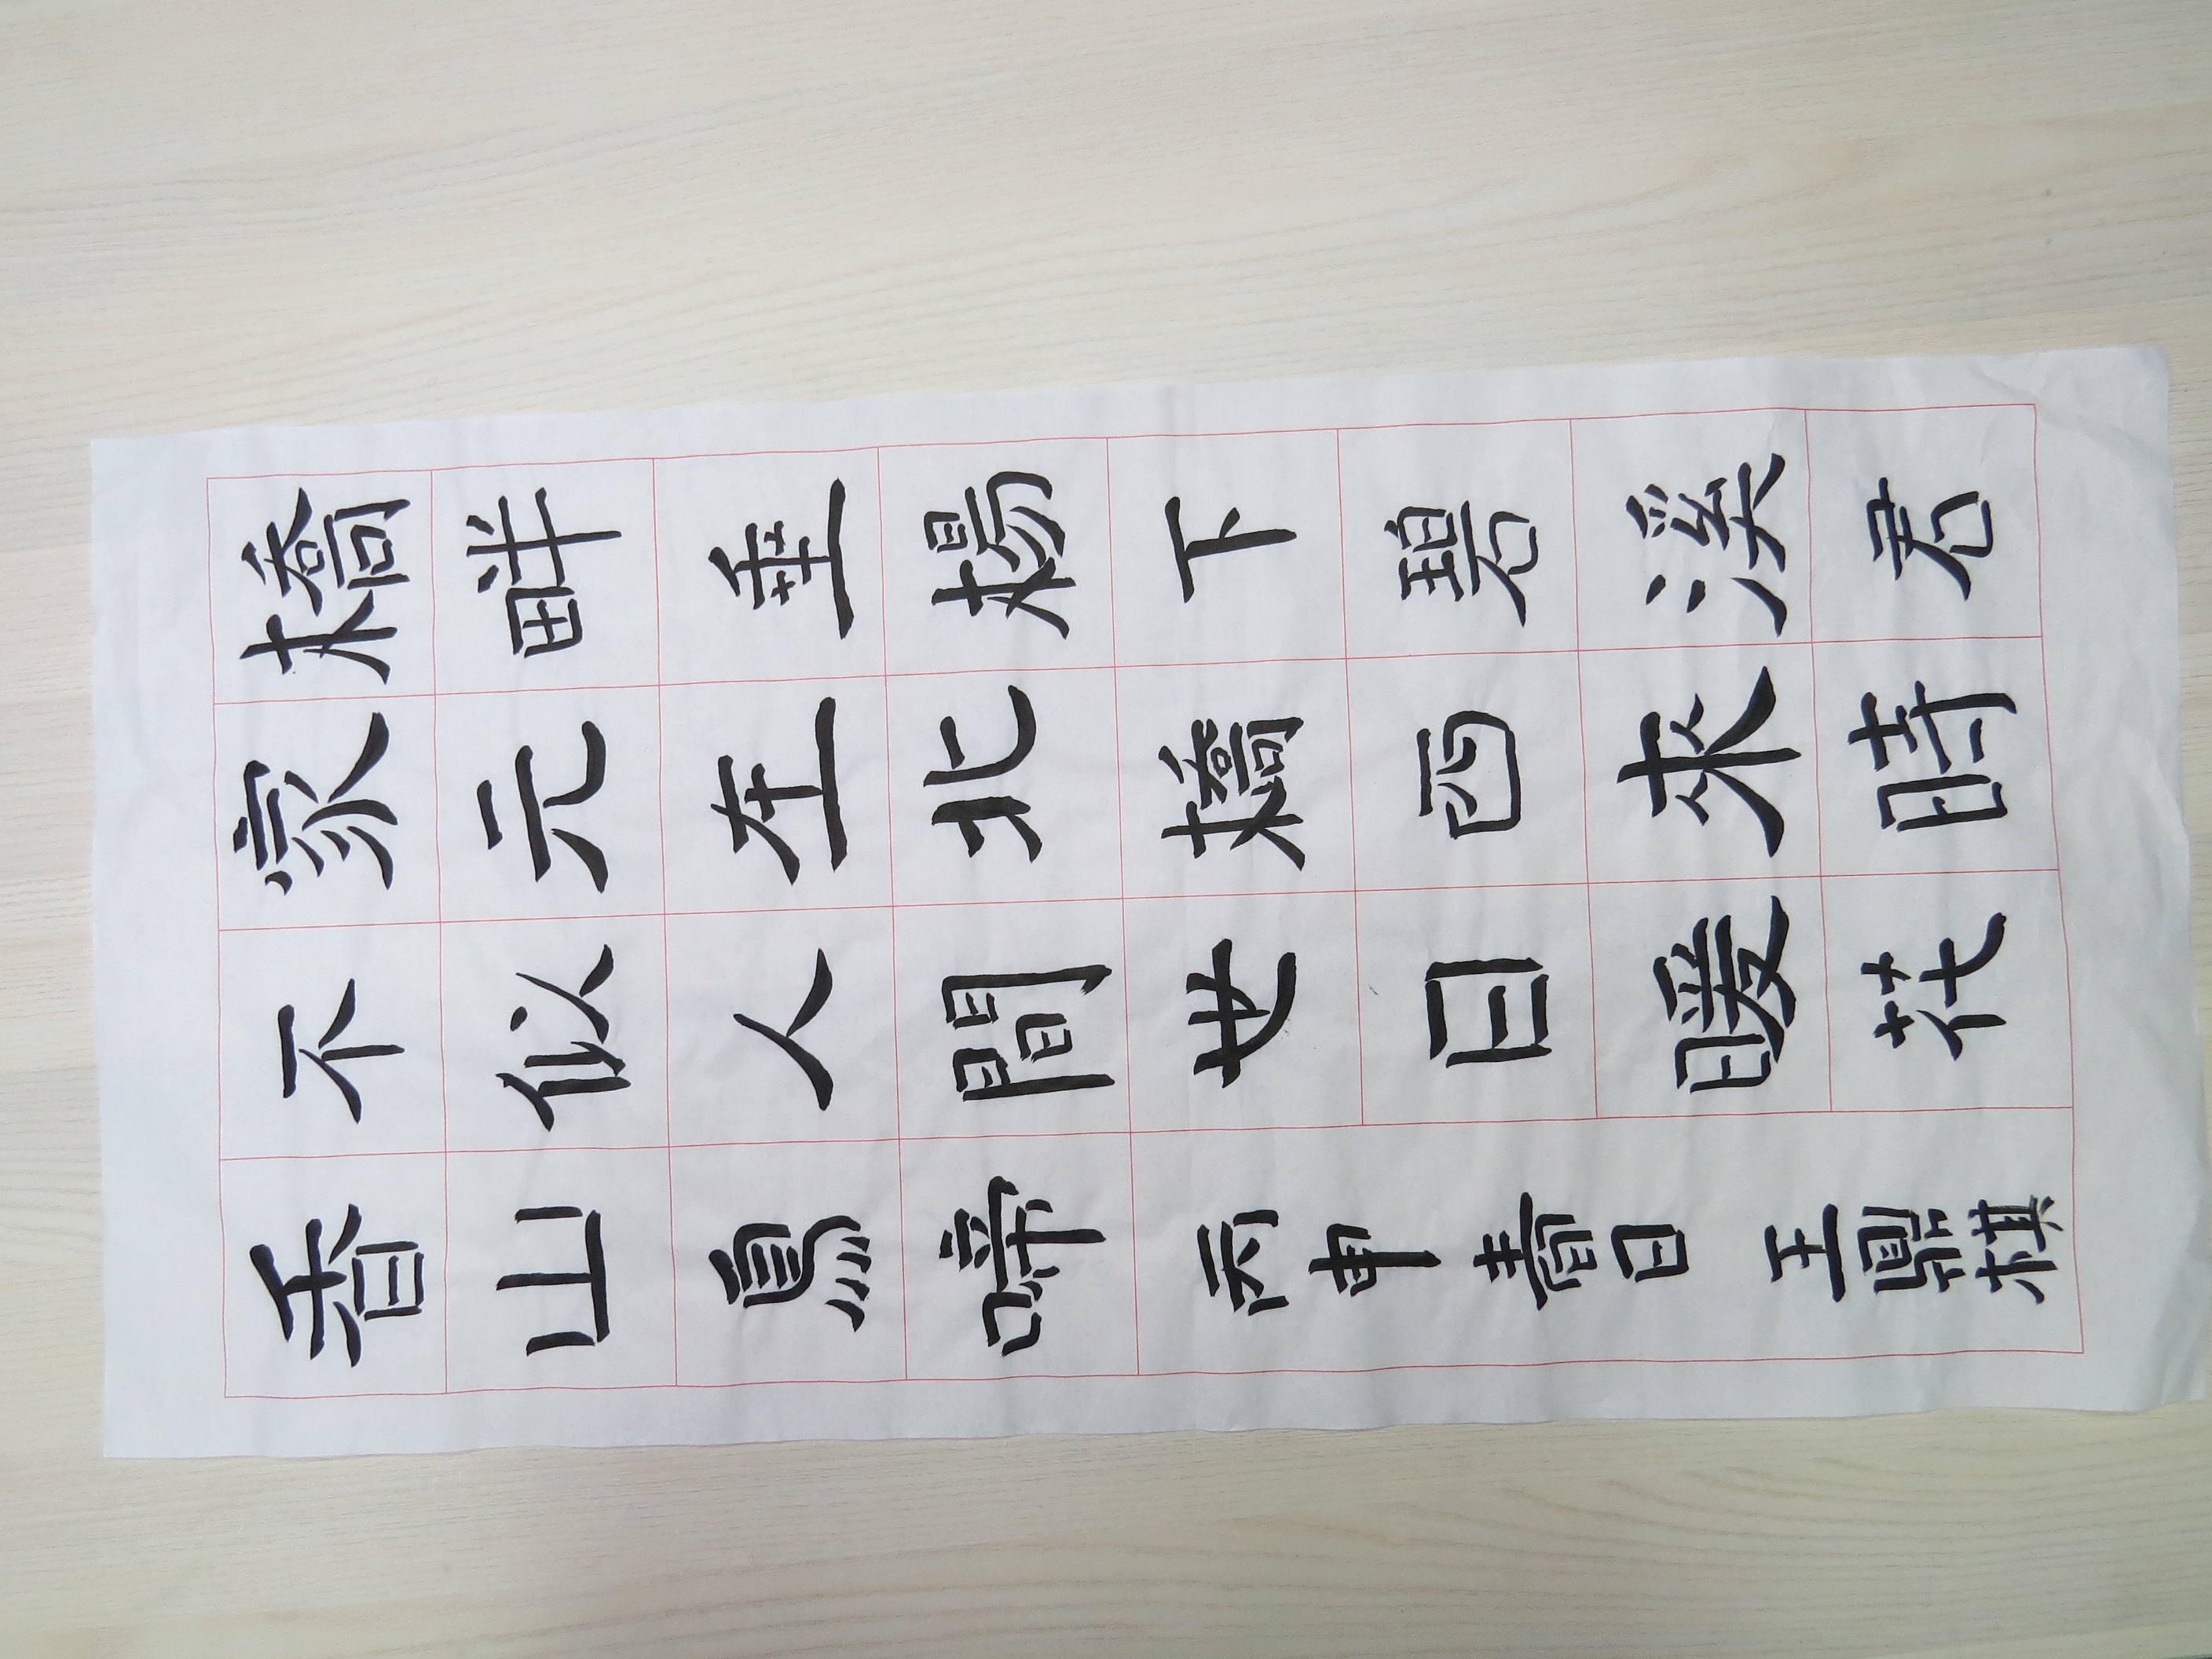 橋畔垂楊下碧溪君
家元在北橋西來時
不似人間世日暖花
香山鳥啼 丙申春日 王